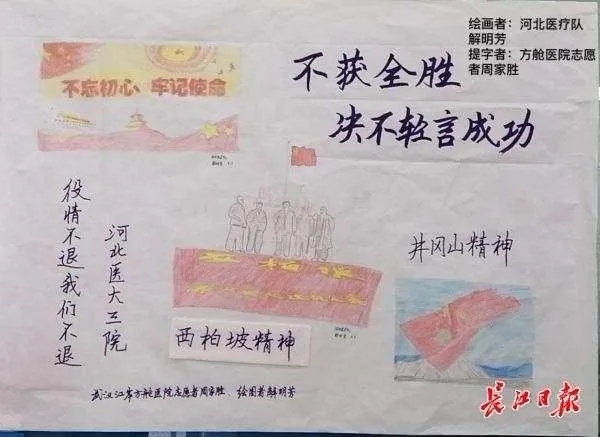 绘画者：河北医疗队
解明芳
提字者：方舱医院志愿
者周家胜
不忘初心 牢记使命
不获全胜
决不轻言成功
役情不退我们不退
河北医大三院
西柏坡
西柏坡精神
井冈山精神
武汉江岸方舱医院志愿者周家胜、绘图者解明芳
长江日报